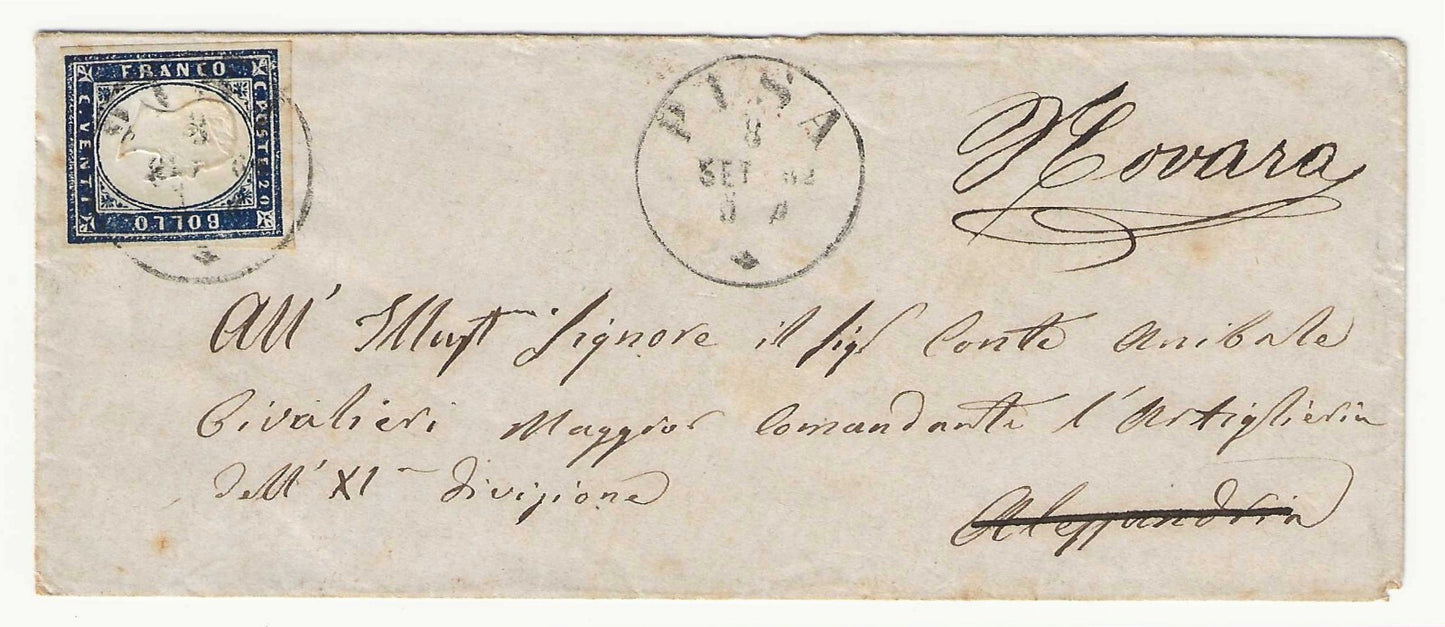 FRANCO
C. POSTE 20
BOLLO
C. VENTI
PISA
8
SET 62
PISA
8
SET 62
Novara
All' Illust.mo Signore il Sigr Conte Anibale
Civalieri Maggior Comandante l'Artiglieria
dell' XIa Divisione
Alessandria